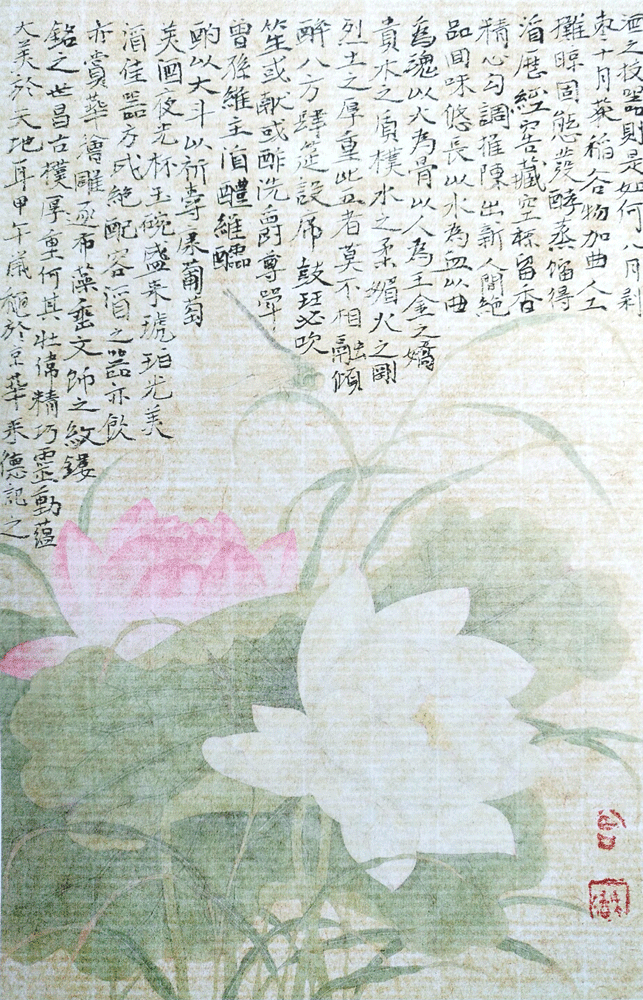 酒之於器則是如何八月剥
枣十月菜稻谷物加曲人工
攤晾固態發酵蒸馏得
酒歷經窖藏空杯留香
精心勾調推陳出新人間絶
品回味悠長以水為血以曲
為魂以火為骨以人為王金之嬌
貴木之质樸水之柔媚火之剛
烈土之厚重此五者莫不相融傾
醉八方肆筵設席鼓瑟吹
笙或献或酢洗爵奠斝
曾孫維主酒醴維醹
酌以大斗以祈壽康葡萄
美酒夜光杯玉碗盛来琥珀光美
酒佳器方成絶配容酒之器亦飲
亦賞華繪雕逐布藻垄文飾之紋鏤
銘之世昌古樸厚重何其壮偉精巧靈動蕴
大美於天地耳甲午歲 於京華秉德記之